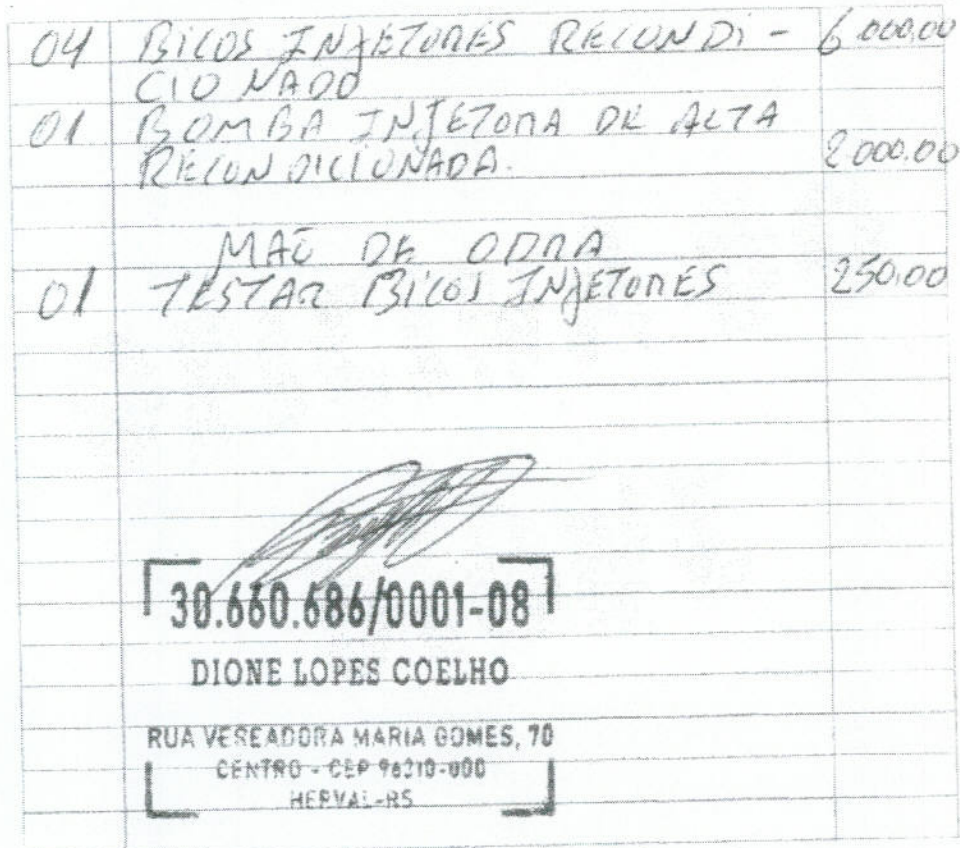 04 BICOS INJETORES RECONDI- 6.000,00
CIONADO
01 BOMBA INJETORA DE ALTA
RECONDICIONADA. 2.000,00
MAO DE OBRA
01 TESTAR BICOS INJETORES 250,00
30.660.686/0001-08
DIONE LOPES COELHO
RUA VEREADORA MARIA GOMES, 70
CENTRO - CEP 96310-000
HERVAL-RS